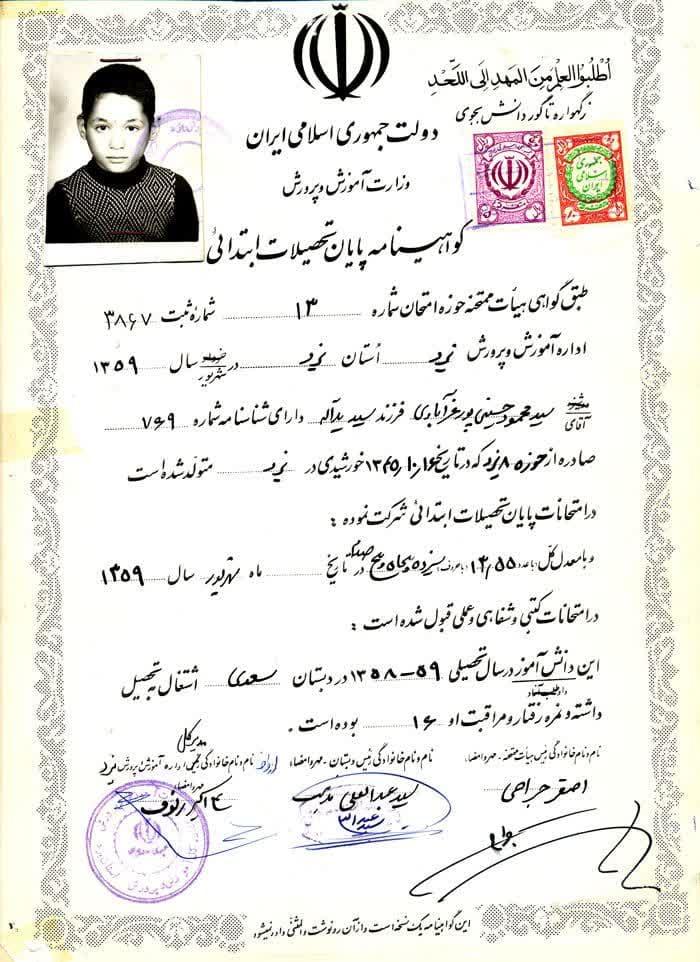 اُطْلُبُوا الْعِلْمَ مِنَ الْمَهْدِ اِلَی اللَّحْدِ
ز گهواره تا گور دانش بجوی
دولت جمهوری اسلامی ایران
وزارت آموزش و پرورش
جمهوری
اسلامی
ایران
گواهینامه پایان تحصیلات ابتدائی
طبق گواهی هیأت ممتحنه حوزه امتحان شماره ۱۳ شماره ثبت ۳۸۶۷
اداره آموزش و پرورش یزد اُستان یزد در خرداد شهریور سال ۱۳۵۹
آقای سید محمود حسینی پور فرزند سید یداله دارای شناسنامه شماره ۷۶۹
صادره از حوزه ۸ یزد که در تاریخ ۱۳۴۵/۱۰/۱۶ خورشیدی در یزد متولد شده است
در امتحانات پایان تحصیلات ابتدائی شرکت نموده :
و با معدل کل : با عدد ۱۳/۵۵ با حروف سیزده و پنجاه و پنج صدم در تاریخ ماه شهریور سال ۱۳۵۹
در امتحانات کتبی و شفاهی و عملی قبول شده است :
این دانش آموز در سال تحصیلی ۵۹-۱۳۵۸ در دبستان سعدی اشتغال به تحصیل
داوطلب آزاد
داشته و نمره رفتار و مراقبت او ۱۶ بوده است .
نام و نام خانوادگی رئیس هیأت ممتحنه - مهر و امضاء
اصغر جراحی
نام و نام خانوادگی رئیس دبستان - مهر و امضاء
سید عبدالعلی
مدیر کل
نام و نام خانوادگی اداره آموزش و پرورش یزد
مهر و امضاء
این گواهینامه یک نسخه است و از آن رونوشت و المثنی داده نمیشود